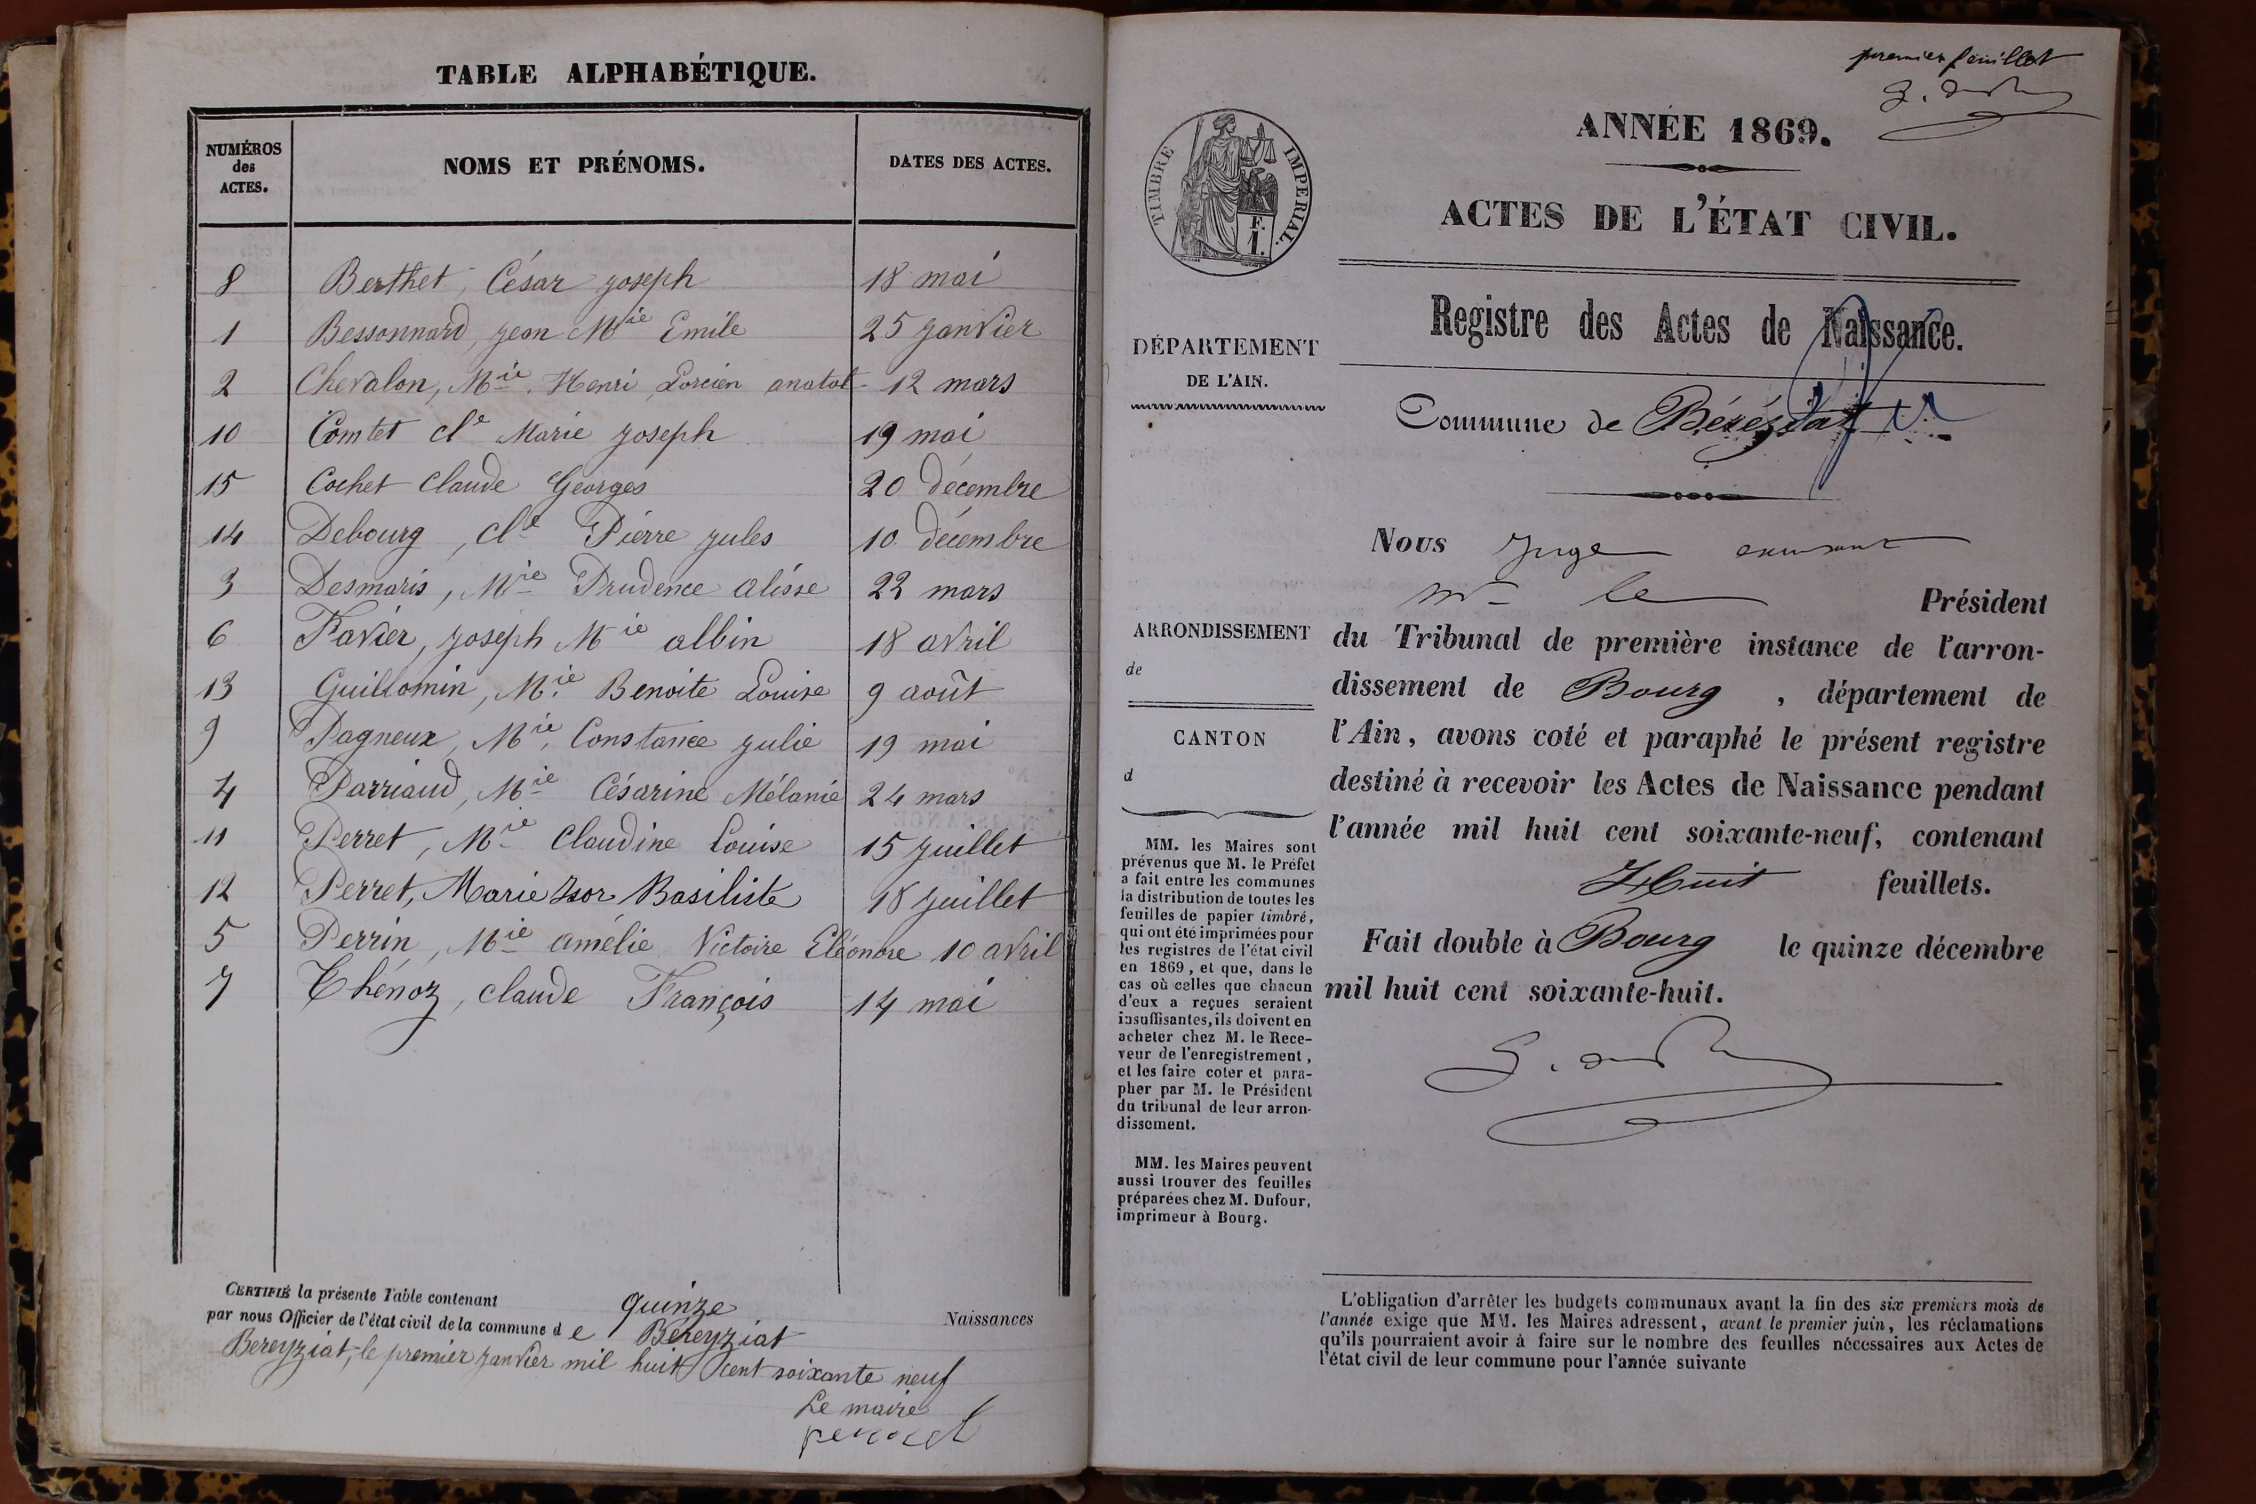 TABLE ALPHABÉTIQUE.
NUMÉROS des ACTES. NOMS ET PRÉNOMS. DATES DES ACTES.
8 Berthet, César joseph 18 mai
1 Bessonnard, jean Mie Emile 25 janvier
2 Chevalon, Mie Henri Lorcien anatol 12 mars
10 Comtet cle Marie joseph 19 mai
15 Cochet claude Georges 20 décembre
14 Debourg, cle Pierre jules 10 décembre
3 Desmaris, Mie Prudence alisse 22 mars
6 Favier, joseph Mie albin 18 avril
13 Guillomin, Mie Benoite Louise 9 août
9 Pagneux, Mie Constance julie 19 mai
4 Parriaud, Mie Césarine Mélanie 24 mars
11 Perret, Mie Claudine Louise 15 juillet
12 Perret, Marie Isor Basiliste 18 juillet
5 Perrin, Mie amélie Victoire Eléonore 10 avril
7 Thénoz, claude François 14 mai
CERTIFIÉ la présente Table contenant quinze Naissances
par nous Officier de l'état civil de la commune d e Béreyziat
Bereyziat, le premier janvier mil huit cent soixante neuf
Le maire
premier feuillet
TIMBRE IMPERIAL.
F.
1.
ANNÉE 1869.
ACTES DE L'ÉTAT CIVIL.
Registre des Actes de Naissance.
DÉPARTEMENT
DE L'AIN.
Commune de Béréziat
Nous juge
mr le Président
ARRONDISSEMENT
de
du Tribunal de première instance de l'arron-
dissement de Bourg, département de
CANTON
d
l'Ain, avons coté et paraphé le présent registre
destiné à recevoir les Actes de Naissance pendant
l'année mil huit cent soixante-neuf, contenant
Huit feuillets.
Fait double à Bourg le quinze décembre
mil huit cent soixante-huit.
MM. les Maires sont
prévenus que M. le Préfet
a fait entre les communes
la distribution de toutes les
feuilles de papier timbré,
qui ont été imprimées pour
les registres de l'état civil
en 1869, et que, dans le
cas où celles que chacun
d'eux a reçues seraient
insuffisantes, ils doivent en
acheter chez M. le Rece-
veur de l'enregistrement,
et les faire coter et para-
pher par M. le Président
du tribunal de leur arron-
dissement.
MM. les Maires peuvent
aussi trouver des feuilles
préparées chez M. Dufour,
imprimeur à Bourg.
L'obligation d'arrêter les budgets communaux avant la fin des six premiers mois de
l'année exige que MM. les Maires adressent, avant le premier juin, les réclamations
qu'ils pourraient avoir à faire sur le nombre des feuilles nécessaires aux Actes de
l'état civil de leur commune pour l'année suivante